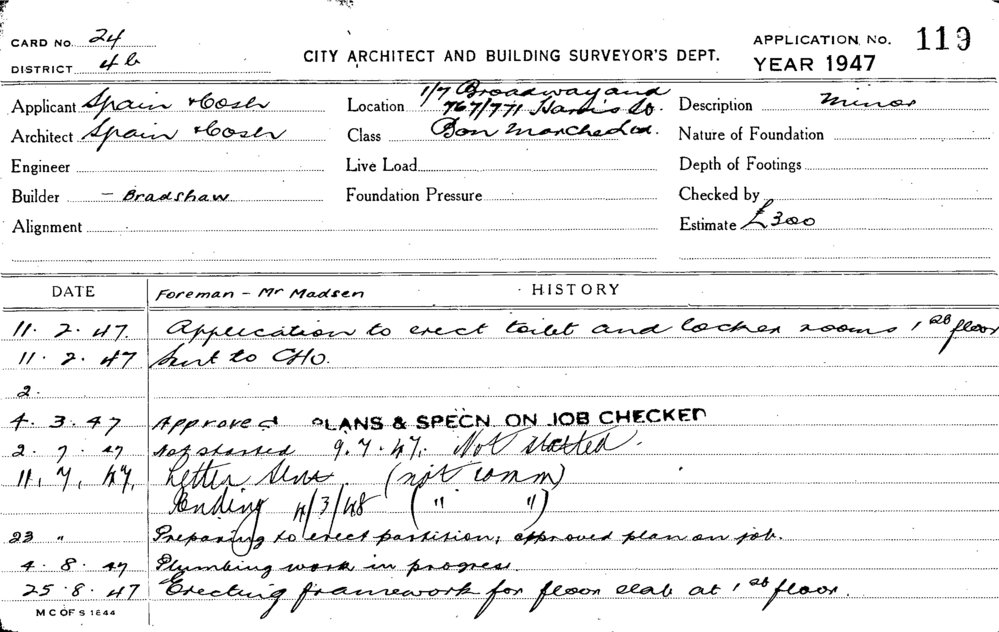 CARD No. 24
DISTRICT 4b
CITY ARCHITECT AND BUILDING SURVEYOR'S DEPT.
APPLICATION No. 119
YEAR 1947
Applicant Spain & Cosh
Location 1/7 Broadway and
767/771 Harris St.
Description Minor
Architect Spain & Cosh
Class Bon Marche Ltd.
Nature of Foundation
Engineer
Live Load
Depth of Footings
Builder - Bradshaw
Foundation Pressure
Checked by
Alignment
Estimate £300
DATE
Foreman - Mr Madsen
HISTORY
11. 2. 47. Application to erect toilet and locker rooms 1st floor
11. 2. 47 Sent to CHO.
2.
4. 3. 47 Approved PLANS & SPECN ON JOB CHECKED
2. 7. 47 Not started 9.7.47. Not started.
11. 7. 47. Letter sent. (not comm)
Pending 4/3/48 (" ")
23 " Preparing to erect partition; approved plan on job.
4. 8. 47 Plumbing work in progress.
25. 8. 47 Erecting framework for floor slab at 1st floor.
M C OF S 1844